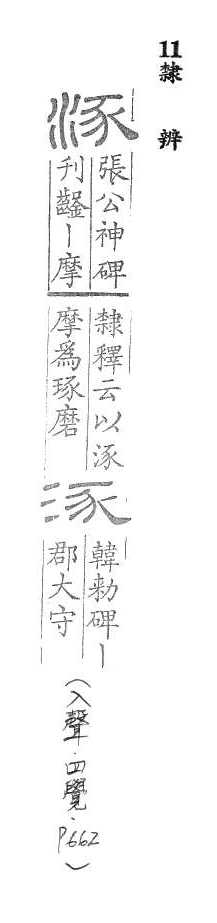 11隸辨
涿
張公神碑
刋鑿丨摩
隸釋云以涿
摩爲琢磨
涿
韓勑碑丨
郡大守
(入聲·四覺·P662)